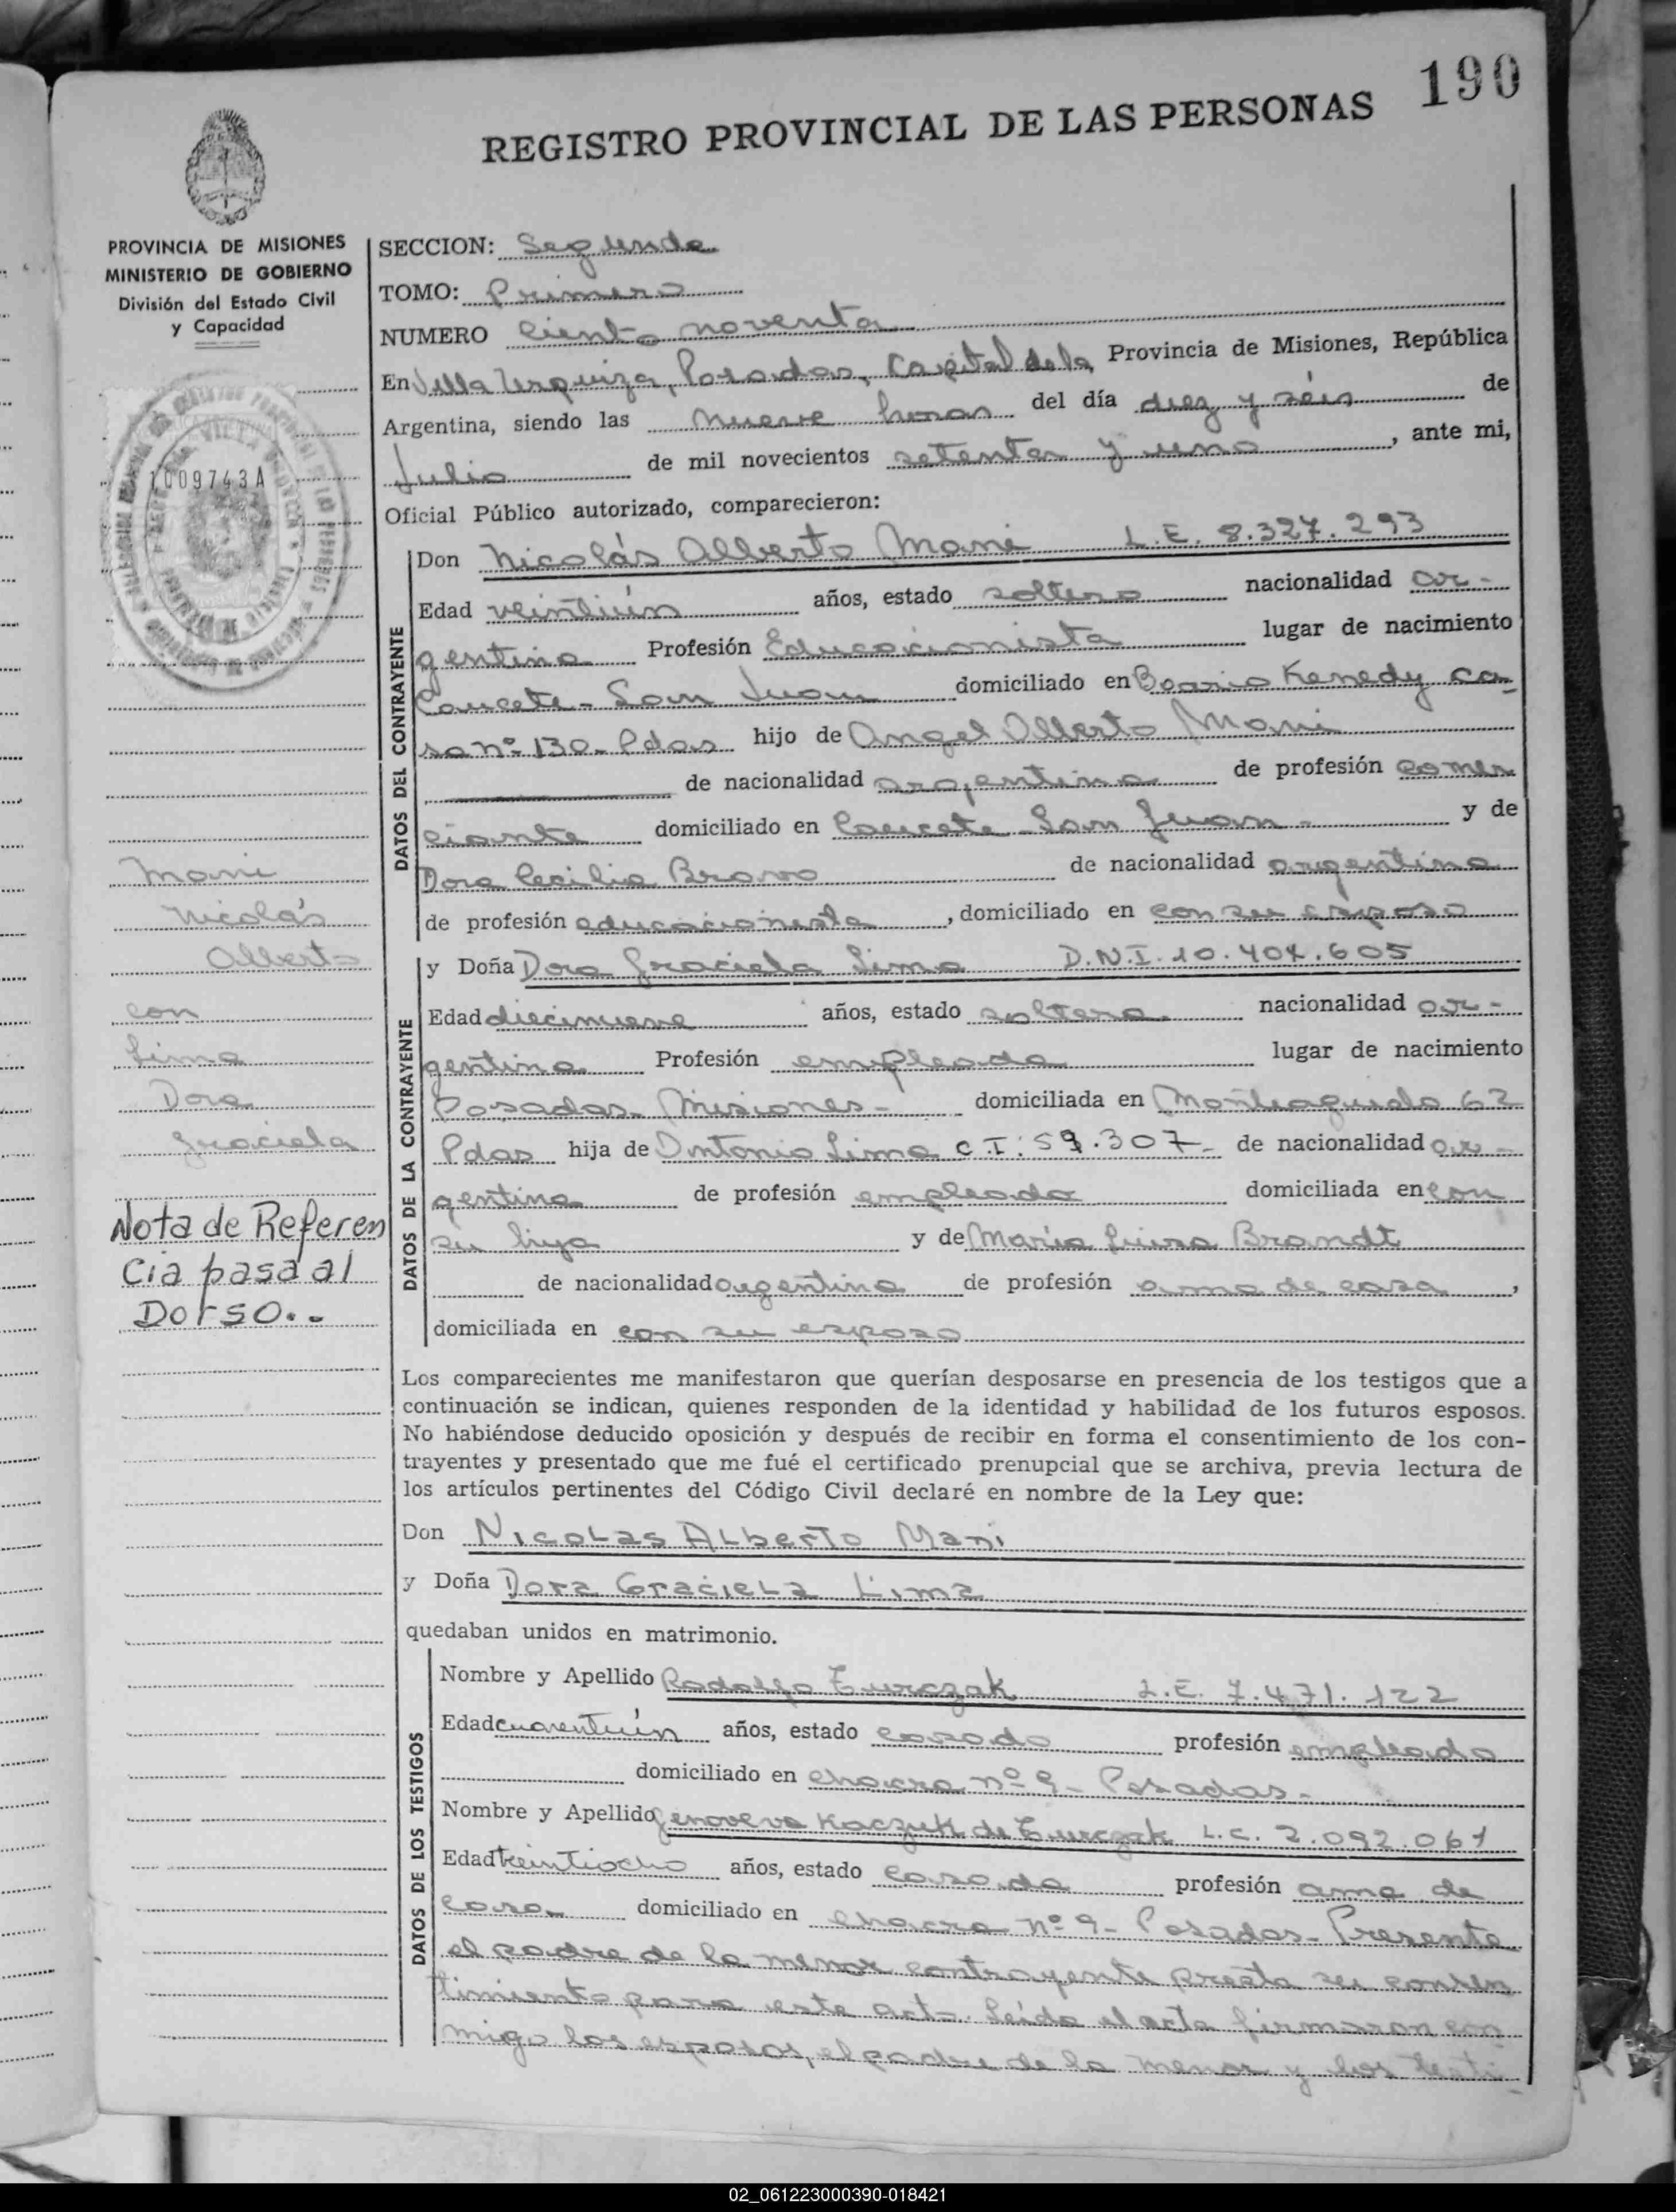 190
REGISTRO PROVINCIAL DE LAS PERSONAS
PROVINCIA DE MISIONES
MINISTERIO DE GOBIERNO
División del Estado Civil
y Capacidad
1009743A
Mani
Nicolás
Alberto
con
Lima
Dora
Graciela
Nota de Referen
cia pasa al
Dorso..
SECCION: Segunda
TOMO: Primero
NUMERO Ciento noventa
En Villa Urquiza, Posadas, Capital de la Provincia de Misiones, República
Argentina, siendo las nueve horas del día diez y séis de
Julio de mil novecientos setenta y uno, ante mi,
Oficial Público autorizado, comparecieron:
DATOS DEL CONTRAYENTE
Don Nicolás Alberto Mani L.E. 8.327.293
Edad veintiún años, estado soltero nacionalidad ar-
gentina Profesión Educacionista lugar de nacimiento
Caucete - San Juan domiciliado en Barrio Kenedy ca-
sa nº 130 - Pdas hijo de Angel Alberto Mani
de nacionalidad argentina de profesión comer
ciante domiciliado en Caucete - San Juan - y de
Dora Cecilia Bravo de nacionalidad argentina
de profesión educacionista, domiciliado en con su esposo
DATOS DE LA CONTRAYENTE
y Doña Dora Graciela Lima D.N.I. 10.404.605
Edad diecinueve años, estado soltera nacionalidad ar-
gentina Profesión empleada lugar de nacimiento
Posadas - Misiones - domiciliada en Monteagudo 62
Pdas hija de Antonio Lima C.I. 59.307 - de nacionalidad ar-
gentina de profesión empleado domiciliada en con
su hija y de María Luisa Brandt
de nacionalidad argentina de profesión ama de casa,
domiciliada en con su esposo
Los comparecientes me manifestaron que querían desposarse en presencia de los testigos que a
continuación se indican, quienes responden de la identidad y habilidad de los futuros esposos.
No habiéndose deducido oposición y después de recibir en forma el consentimiento de los con-
trayentes y presentado que me fué el certificado prenupcial que se archiva, previa lectura de
los artículos pertinentes del Código Civil declaré en nombre de la Ley que:
Don Nicolas Alberto Mani
y Doña Dora Graciela Lima
quedaban unidos en matrimonio.
DATOS DE LOS TESTIGOS
Nombre y Apellido Rodolfo Turczak L.E. 7.471.122
Edad cuarentiún años, estado casado profesión empleado
domiciliado en chacra nº 9 - Posadas -
Nombre y Apellido Genoveva Kaczuk de Turczak L.C. 2.092.061
Edad treintiocho años, estado casada profesión ama de
casa domiciliado en chacra nº 9 - Posadas - Presente
el padre de la menor contrayente presta su consen
timiento para este acto. Leída el acta firmaron con
migo los esposos, el padre de la menor y los testi-
02_061223000390-018421